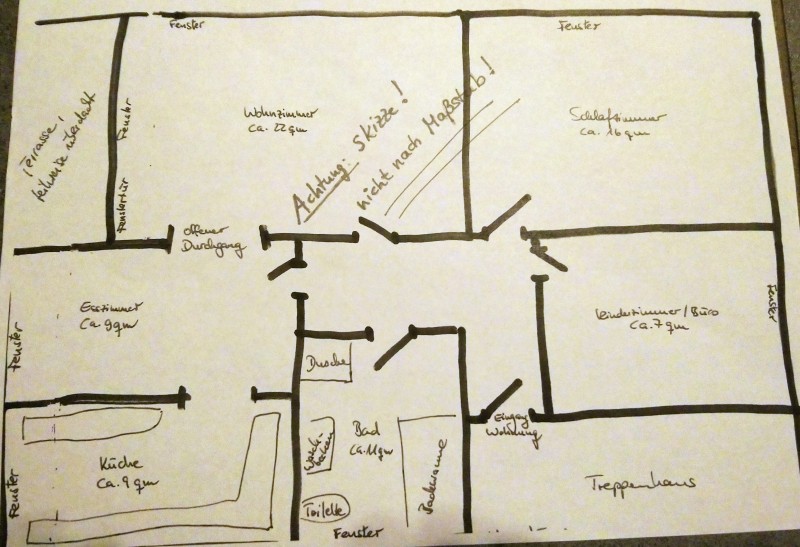 Fenster
Fenster
Terrasse,
teilweise überdacht
Fenster
Fenstertür
Wohnzimmer
ca. 22 qm
Achtung: Skizze!
nicht nach Maßstab!
Schlafzimmer
ca. 16 qm
offener
Durchgang
Esszimmer
ca. 9 qm
Fenster
Kinderzimmer/Büro
ca. 7 qm
Fenster
Dusche
Küche
ca. 9 qm
Fenster
Wasch-
becken
Bad
ca. 11 qm
Badewanne
Toilette
Fenster
Eingang
Wohnung
Treppenhaus